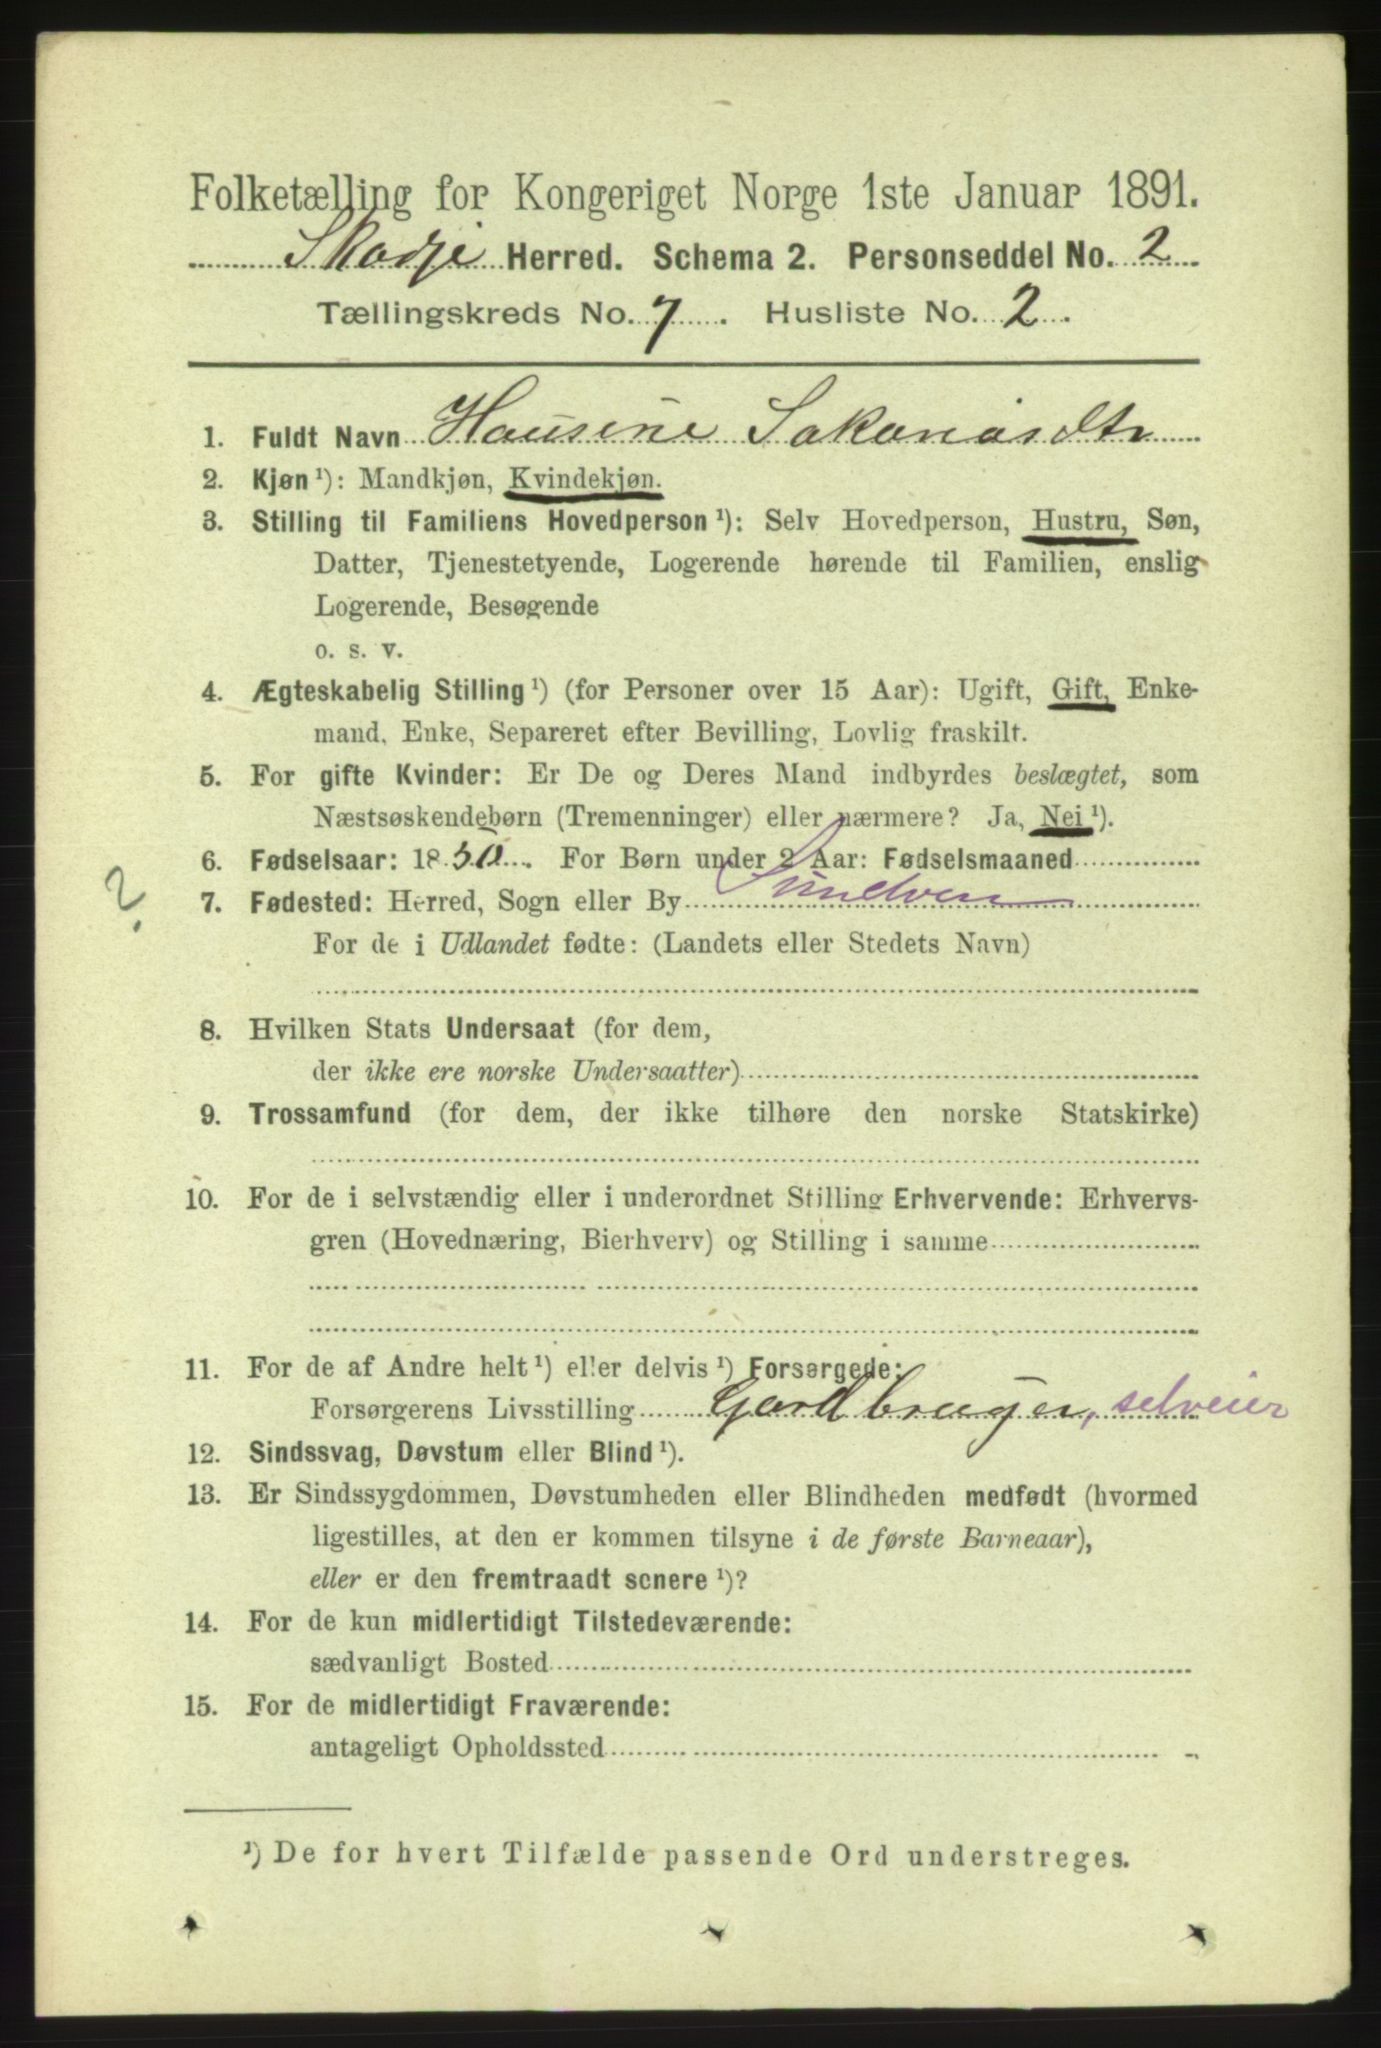 Folketælling for Kongeriget Norge 1ste Januar 1891.
Skodje Herred. Schema 2. Personseddel No. 2
Tællingskreds No. 7. Husliste No. 2.
1. Fuldt Navn Hausine Sakariasdtr
2. Kjøn ¹): Mandkjøn, Kvindekjøn.
3. Stilling til Familiens Hovedperson ¹): Selv Hovedperson, Hustru, Søn,
Datter, Tjenestetyende, Logerende hørende til Familien, enslig
Logerende, Besøgende
o. s. v.
4. Ægteskabelig Stilling ¹) (for Personer over 15 Aar): Ugift, Gift, Enke-
mand, Enke, Separeret efter Bevilling, Lovlig fraskilt.
5. For gifte Kvinder: Er De og Deres Mand indbyrdes beslægtet, som
Næstsøskendebørn (Tremenninger) eller nærmere? Ja, Nei ¹).
6. Fødselsaar: 1850. For Børn under 2 Aar: Fødselsmaaned
?
7. Fødested: Herred, Sogn eller By
For de i Udlandet fødte: (Landets eller Stedets Navn)
8. Hvilken Stats Undersaat (for dem,
der ikke ere norske Undersaatter)
9. Trossamfund (for dem, der ikke tilhøre den norske Statskirke)
10. For de i selvstændig eller i underordnet Stilling Erhvervende: Erhvervs-
gren (Hovednæring, Bierhverv) og Stilling i samme
11. For de af Andre helt ¹) eller delvis ¹) Forsørgede:
Forsørgerens Livsstilling Gardbruger, selveier
12. Sindssvag, Døvstum eller Blind ¹).
13. Er Sindssygdommen, Døvstumheden eller Blindheden medfødt (hvormed
ligestilles, at den er kommen tilsyne i de første Barneaar),
eller er den fremtraadt senere ¹)?
14. For de kun midlertidigt Tilstedeværende:
sædvanligt Bosted
15. For de midlertidigt Fraværende:
antageligt Opholdssted
¹) De for hvert Tilfælde passende Ord understreges.